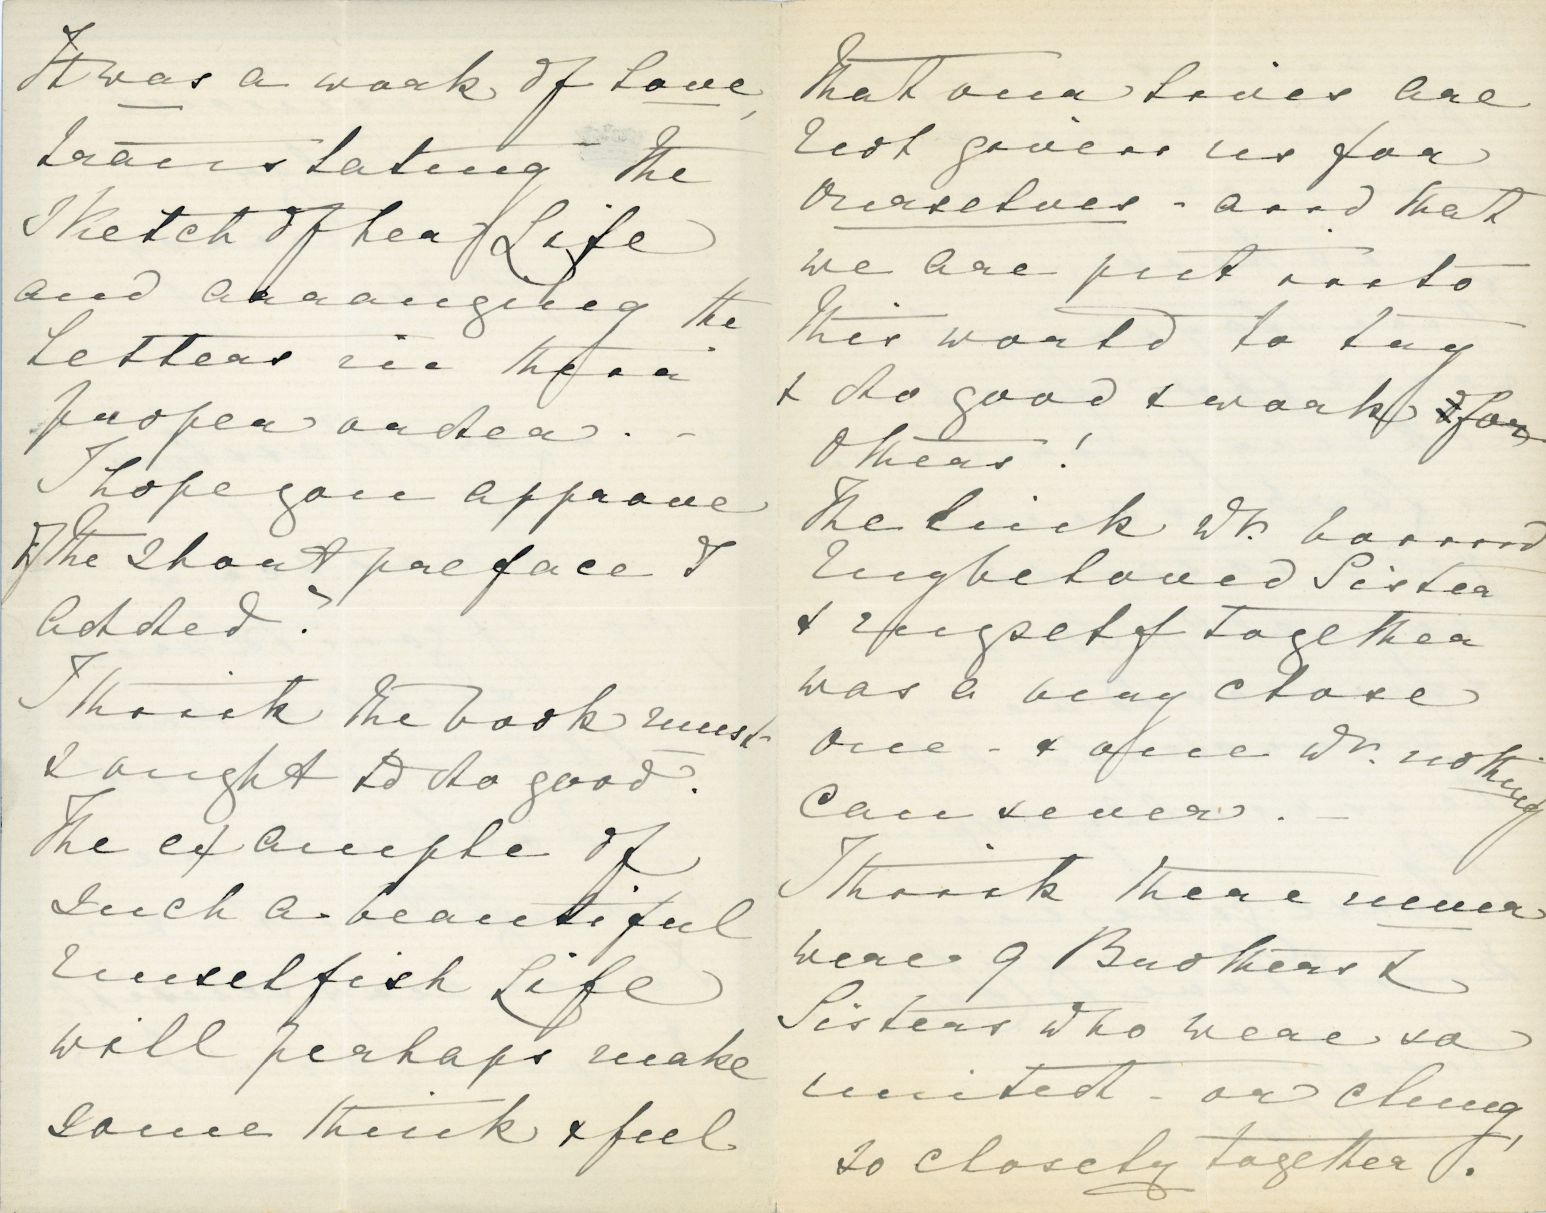 It was a work of Love,
translating the
Sketch of her Life
and arranging the
Letters in their
proper order. -
I hope you approve
of the short preface I
added?
I think the book must
& ought to do good.
The example of
such a beautiful
unselfish Life
will perhaps make
some think & feel
that our lives are
not given us for
ourselves - and that
we are put into
this world to try
& do good & work for
others!
The link wh. bound
my beloved Sister
& myself together
was a very close
one - & one wh. nothing
can sever. -
I think there never
were 9 Brothers &
Sisters who were so
united - or clung
so closely together!